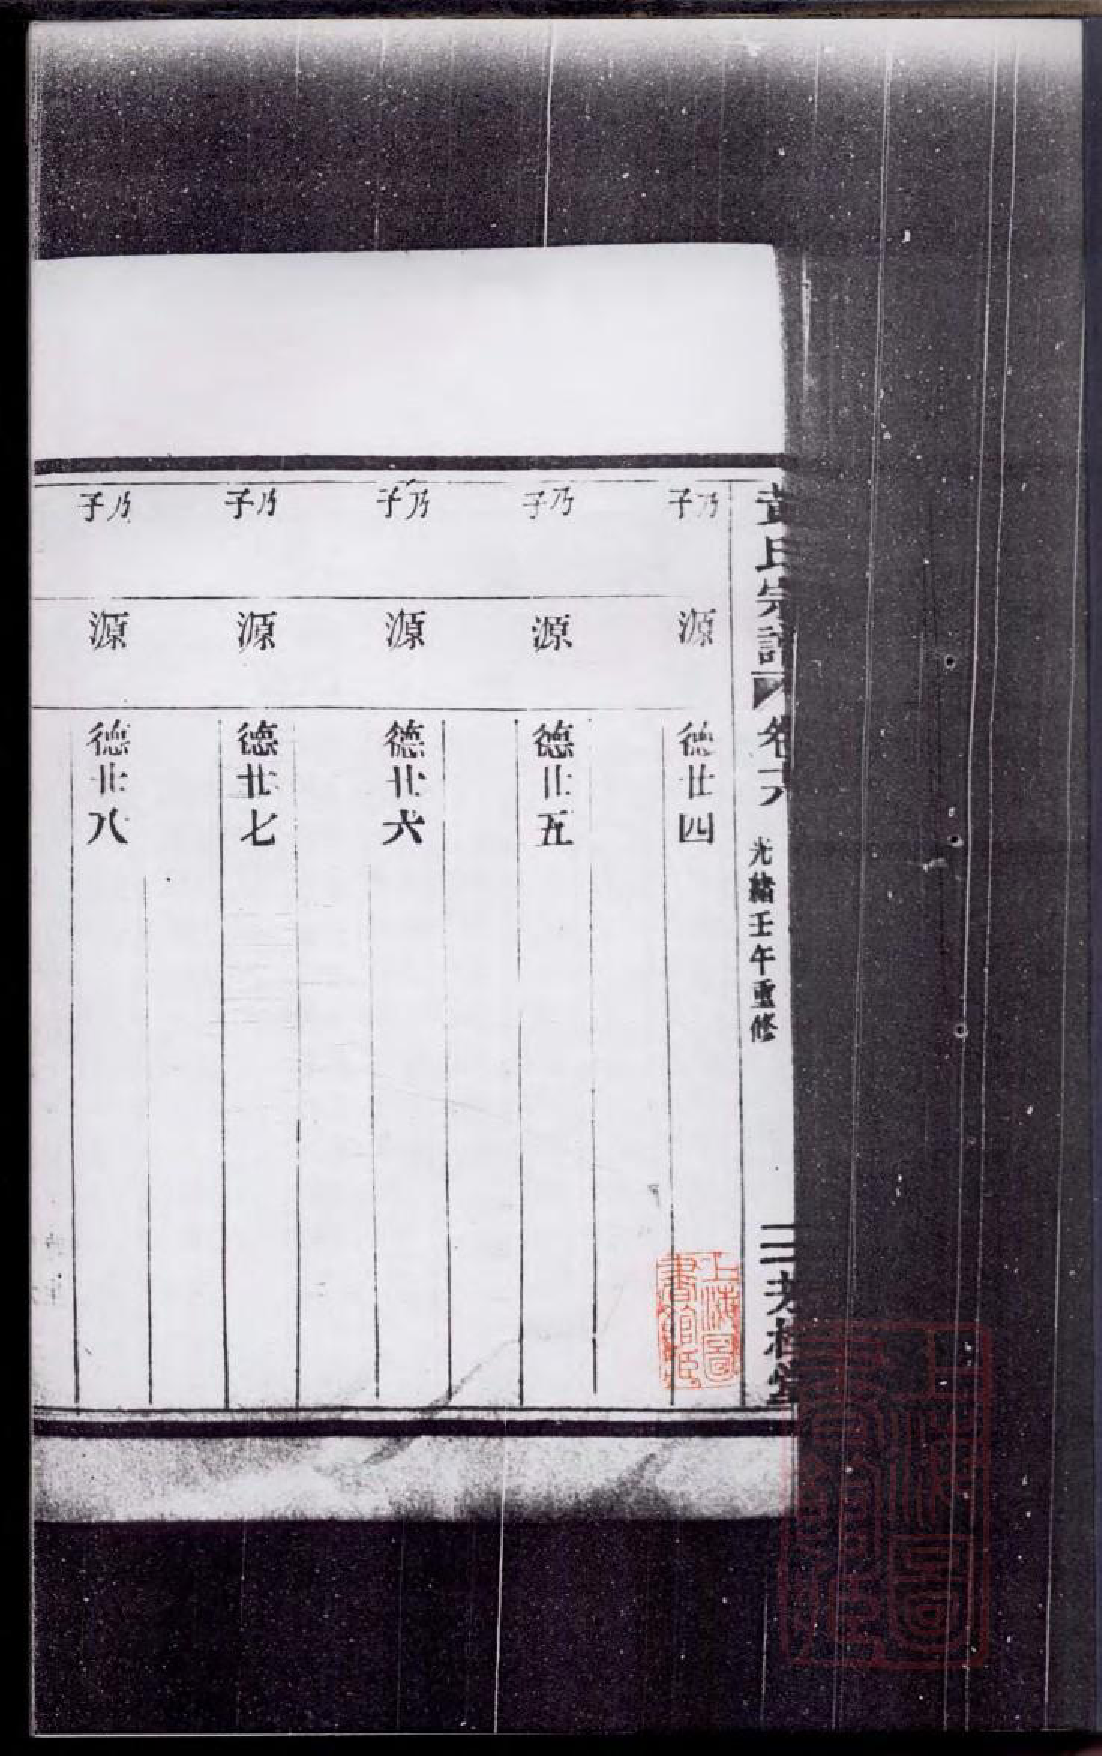 黃氏宗譜
卷六
光緒壬午重修
乃子
源
德廿四
乃子
源
德廿五
乃子
源
德廿六
乃子
源
德廿七
乃子
源
德廿八
上海圖書館藏